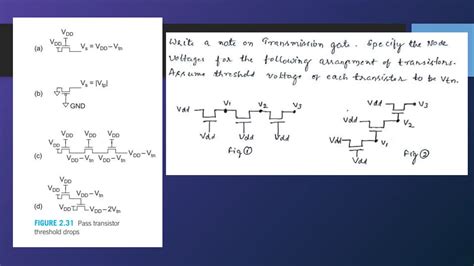 (a)
VDD
VDD
Vs = VDD–Vtn
(b)
Vs = |Vtp|
GND
(c)
VDD VDD VDD
VDD
VDD–Vtn VDD–Vtn
VDD–Vtn
(d)
VDD
VDD–Vtn
VDD
VDD–2Vtn
FIGURE 2.31 Pass transistor
threshold drops
Write a note on Transmission gate. Specify the Node
voltages for the following arrangment of transistors.
Assume threshold voltage of each transistor to be Vtn.
Vdd V1 V2 V3
Vdd Vdd Vdd
Fig ①
Vdd V3
Vdd V2
Vdd V1
Vdd
Fig ②